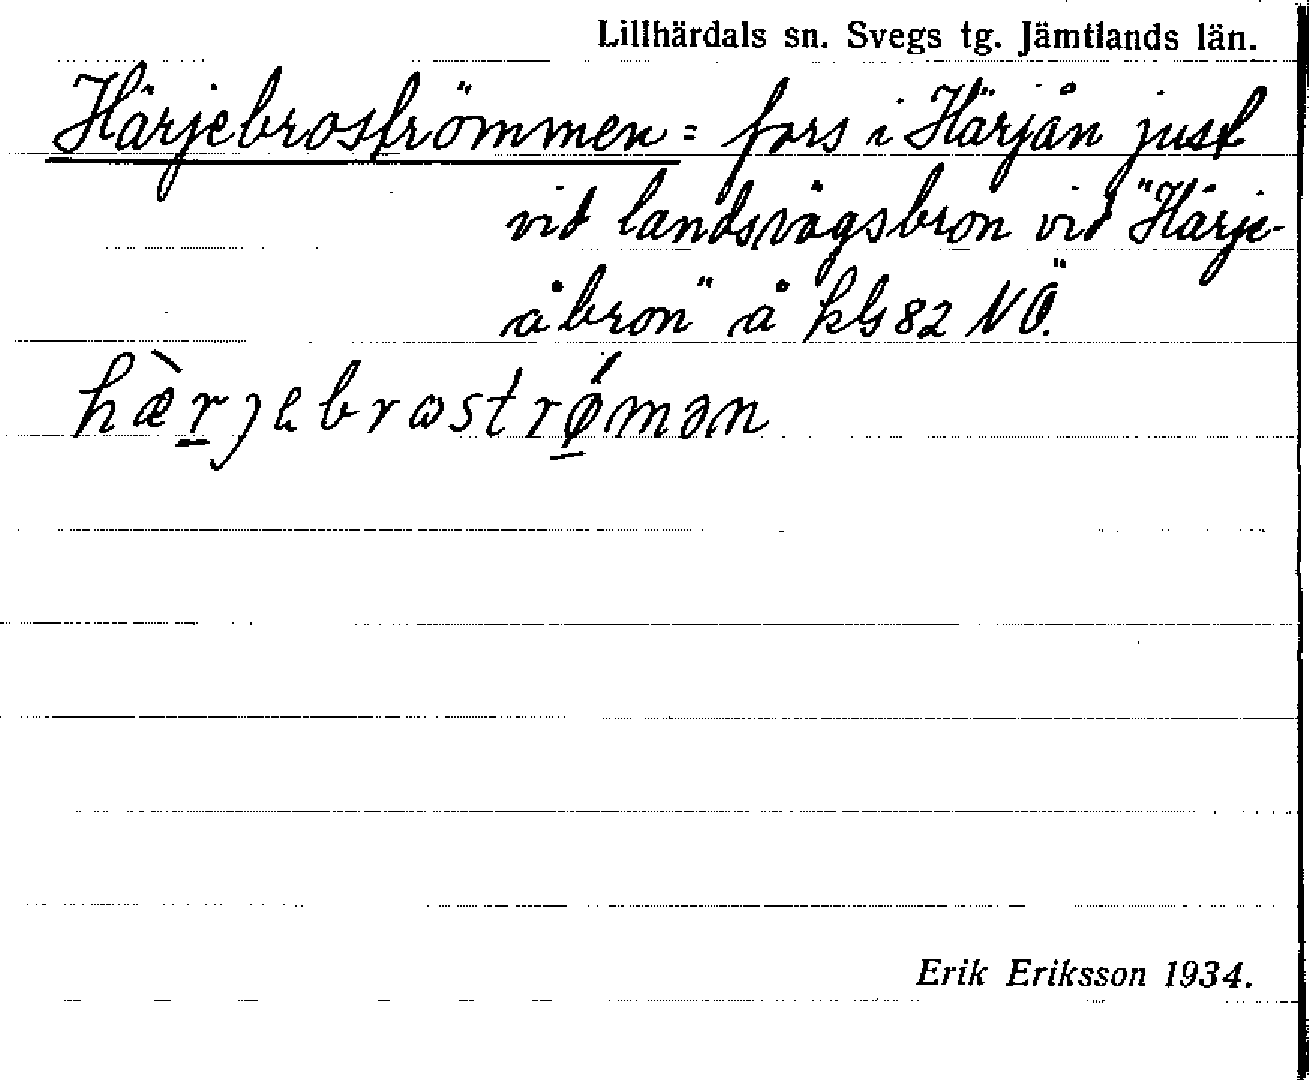 Lillhärdals sn. Svegs tg. Jämtlands län.
Härjebroströmmen = fors i Härjån just
vid landsvägsbron vid "Härje-
åbron" å kbl 82 NÖ.
hæ̀rjebrωstrǿmən
Erik Eriksson 1934.